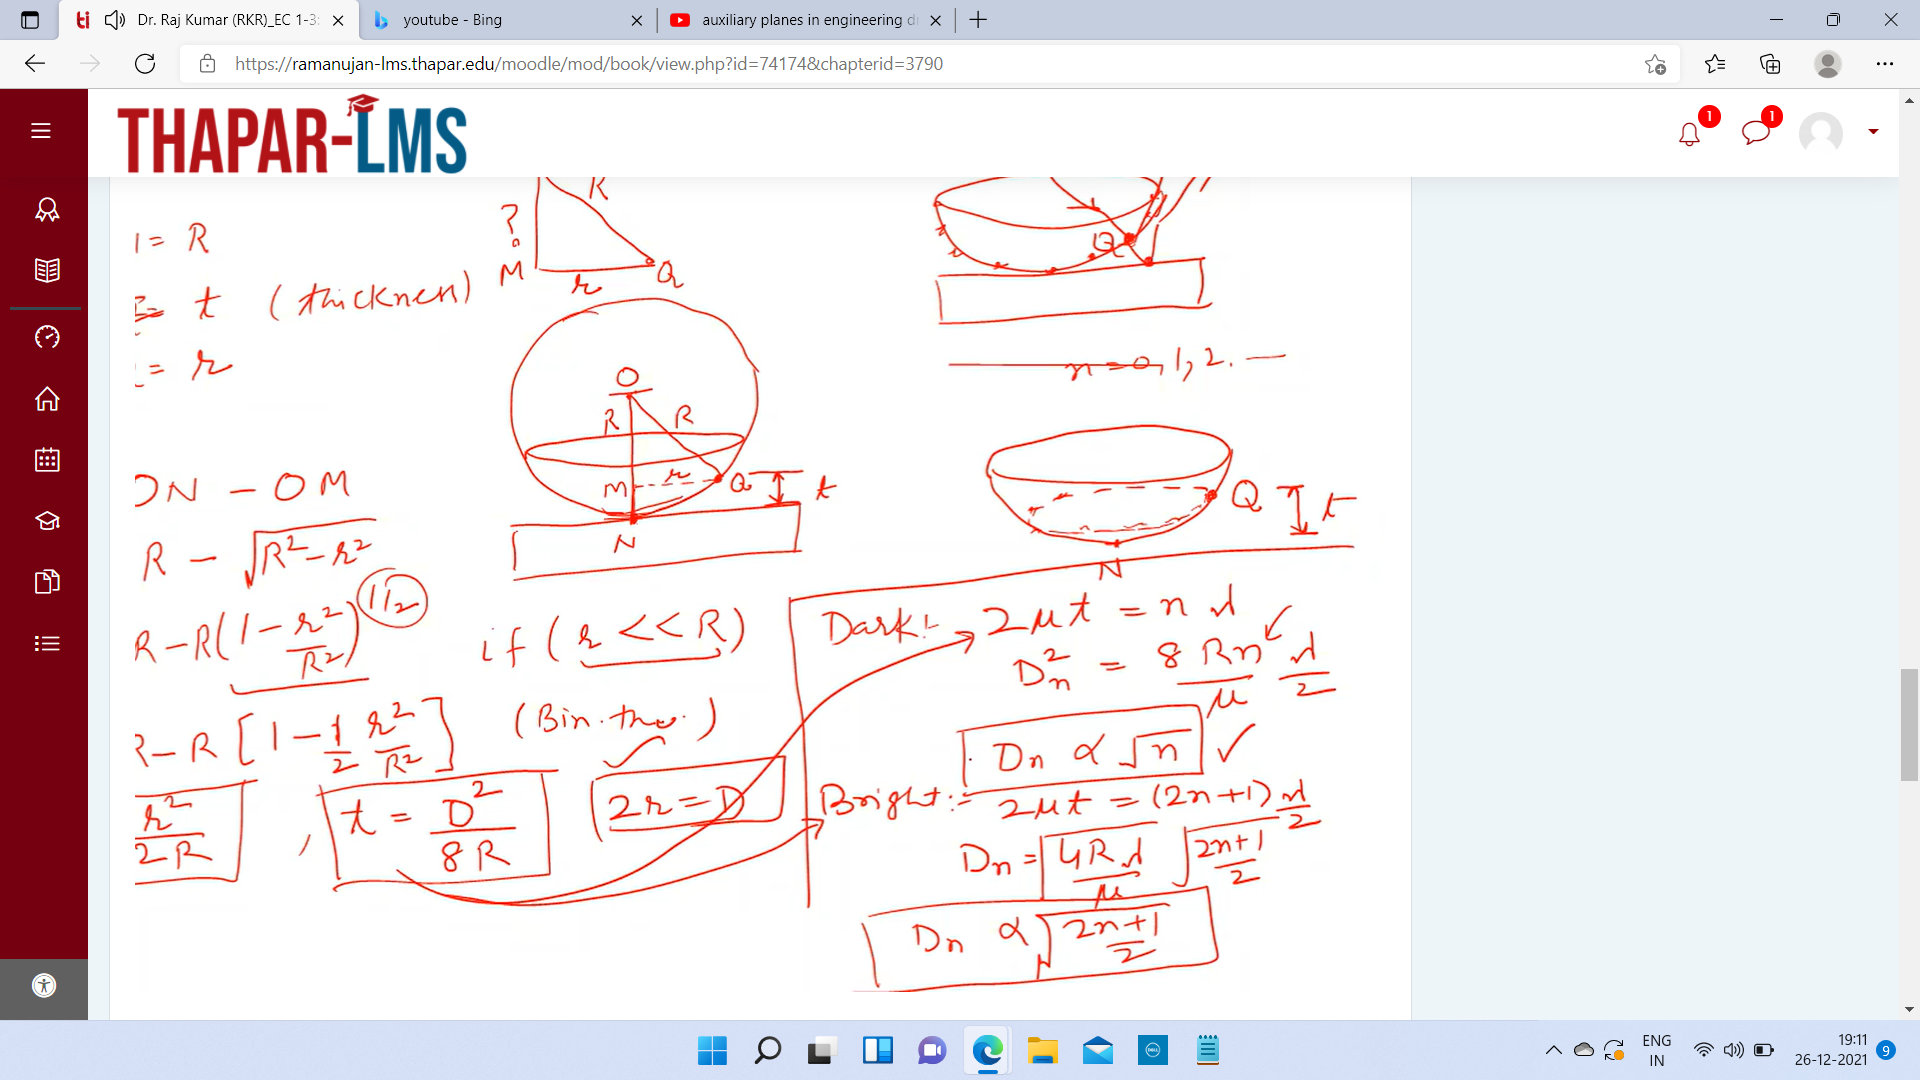 Dr. Raj Kumar (RKR)_EC 1-3
youtube - Bing
auxiliary planes in engineering d
https://ramanujan-lms.thapar.edu/moodle/mod/book/view.php?id=74174&chapterid=3790
THAPAR-LMS
1
1
R
?
M
r
Q
= R
= t (thickness)
= r
Q
n = 0, 1, 2. —
O
R
R
M
r
Q
t
N
Q
t
N
ON - OM
R - √R²-r²
R-R(1-r²/R²)^1/2
if (r << R)
R-R[1-1/2 r²/R²]
(Bin. theo.)
r²/2R , t = D²/8R
2r = D
Dark:- 2μt = nλ
Dn² = 8Rn/μ λ/2
Dn ∝ √n
Bright:- 2μt = (2n+1) λ/2
Dn = √4Rλ/μ √2n+1/2
Dn ∝ √2n+1/2
ENG
IN
19:11
26-12-2021
9